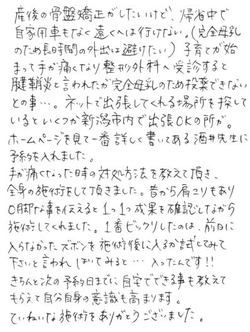 産後の骨盤矯正がしたいけど、帰省中で
自家用車もなく遠くへは行けない。(完全母乳
のため長時間の外出は避けたい) 子育てが始
まって手が痛くなり整形外科へ受診すると
腱鞘炎と言われたが完全母乳のため投薬できない
との事…。ネットで出張してくれる場所を探して
いるといくつか新潟市内で出張OKの所が。
ホームページを見て一番詳しく書いてある酒井先生に
予約を入れました。
手が痛くなった時の対処方法を教えて頂き、
全身の施術をして頂きました。昔から肩こりもあり
O脚な事を伝えると1つ1つ成果を確認しながら
施術してくれました。1番ビックリしたのは、前日に
入らなかったズボンを施術後に入るか試してみて
下さいと言われ はいてみると… 入ったんです!!
きちんと次の予約日までに、自宅でできる事も教えて
もらえて自分自身の意識も高まります。
ていねいな施術をありがとうございました。